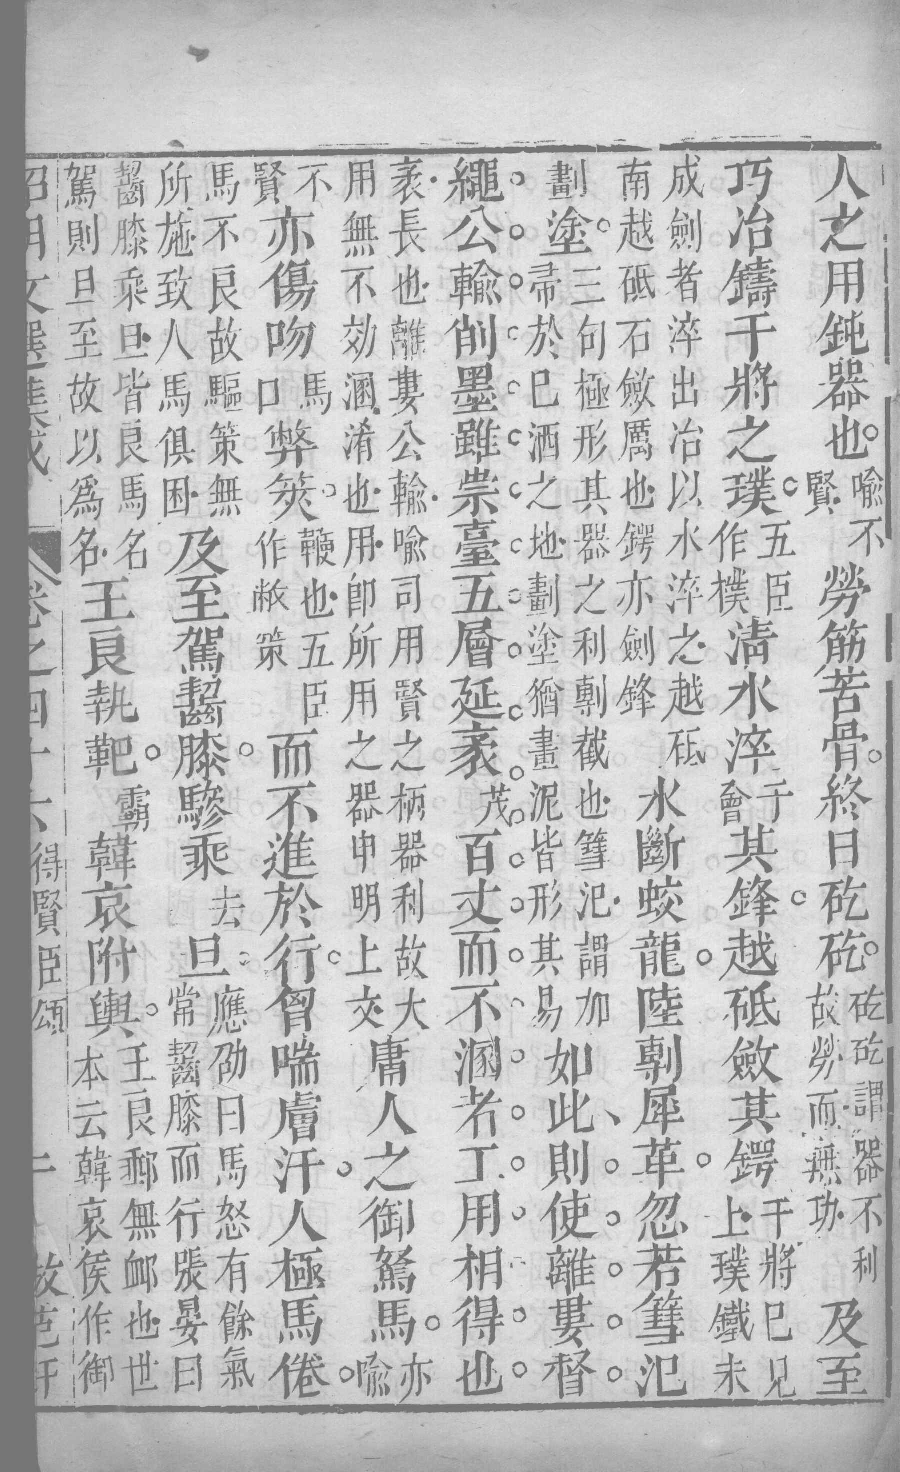 人之用鈍器也喻不賢勞筋苦骨終日矻矻矻矻謂器不利故勞而無功及至
巧冶鑄干將之璞五臣作樸清水淬于會其鋒越砥斂其鍔干將巳見上璞鐵未
成劍者淬出冶以水淬之越砥南越砥石斂厲也鍔亦劍鋒水斷蛟龍陸剸犀革忽若篲氾
劃塗三句極形其器之利剸截也篲氾謂如帚於巳洒之地劃塗猶畫泥皆形其易如此則使離婁督
繩公輸削墨雖崇臺五層延袤茂百丈而不溷者工用相得也
袤長也離婁公輸喻司用賢之柄器利故大用無不効溷淆也用即所用之器申明上文庸人之御駑馬亦喻
不賢亦傷吻馬口弊筴鞭也五臣作敝策而不進於行胷喘膚汗人極馬倦
馬不良故驅策無所施致人馬俱困及至駕齧膝驂乘去旦應劭曰馬怒有餘氣常齧膝而行張晏曰
齧膝乘旦皆良馬名駕則旦至故以爲名王良執靶霸韓哀附輿王良郵無衈也世本云韓哀侯作御
昭明文選集成 卷之四十六 得賢臣頌